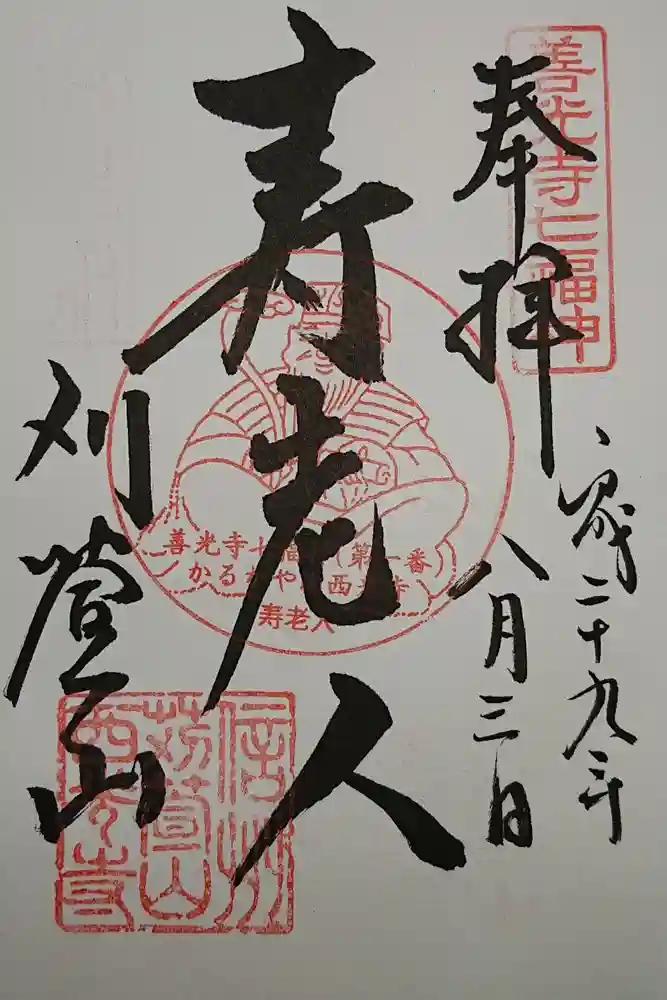 善光寺七福神
奉拝
平成二十九年
八月三日
寿老人
善光寺七福神(第一番)
かるかや山西光寺
寿老人
刈萱山
信州
苅萱山
西光寺